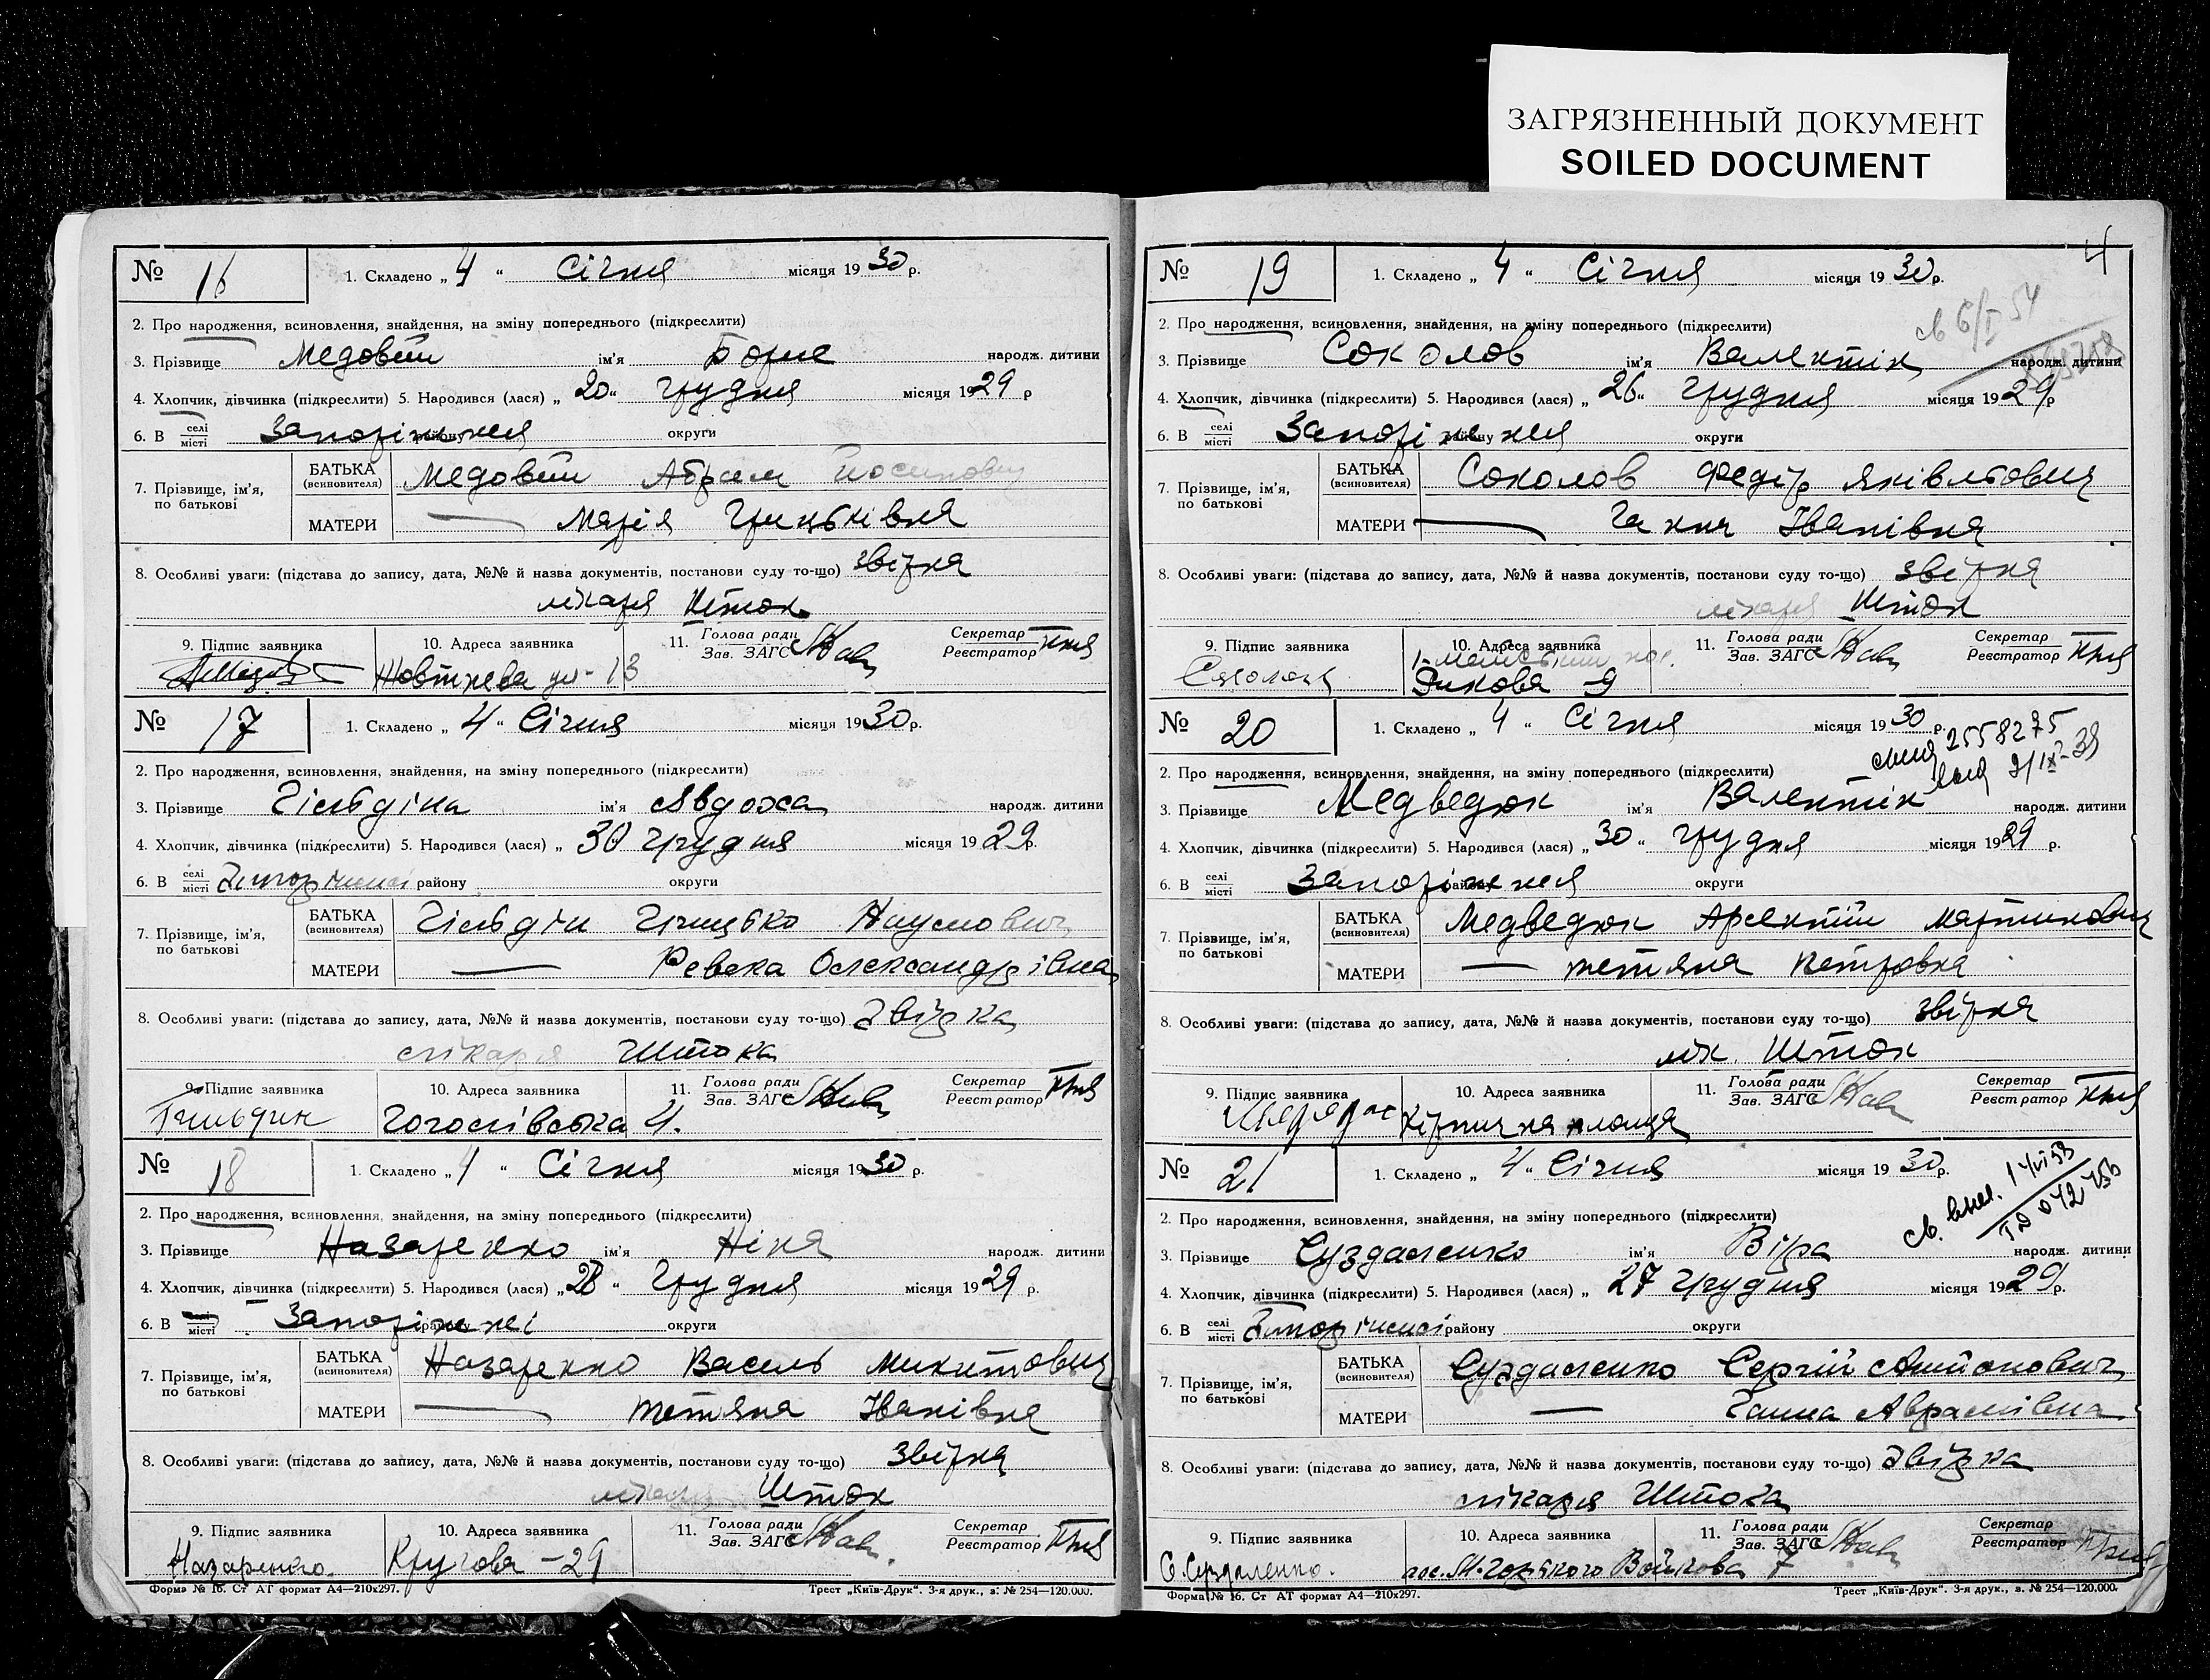 ЗАГРЯЗНЕННЫЙ ДОКУМЕНТ
SOILED DOCUMENT
№ 16 1. Складено „ 4 “ Січня місяця 19 30 р.
2. Про народження, всиновлення, знайдення, на зміну попереднього (підкреслити)
3. Прізвище Медовий ім'я Борис народж. дитини
4. Хлопчик, дівчинка (підкреслити) 5. Народився (лася) „ 20 “ грудня місяця 19 29 р
6. В селі місті Запоріжжя району округи
7. Прізвище, ім'я, по батькові БАТЬКА (всиновителя) Медовий Абрам Йосипович
МАТЕРИ — Марія Грицьківна
8. Особливі уваги: (підстава до запису, дата, №№ й назва документів, постанови суду то-що) звірка
лікаря Шток
9. Підпис заявника 10. Адреса заявника 11. Голова ради Зав. ЗАГС Секретар Реєстратор
Жовтнева ул - 13
№ 17 1. Складено „ 4 “ Січня місяця 19 30 р.
2. Про народження, всиновлення, знайдення, на зміну попереднього (підкреслити)
3. Прізвище Гільдіна ім'я Авдоха народж. дитини
4. Хлопчик, дівчинка (підкреслити) 5. Народився (лася) „ 30 грудня місяця 19 29 р.
6. В селі місті Запоріжжі району округи
7. Прізвище, ім'я, по батькові БАТЬКА (всиновителя) Гільдін Грицько Наумович
МАТЕРИ — Ревека Олександрівна
8. Особливі уваги: (підстава до запису, дата, №№ й назва документів, постанови суду то-що) Звірка
лікаря Штока
9. Підпис заявника 10. Адреса заявника 11. Голова ради Зав. ЗАГС Секретар Реєстратор
Гильдин Гоголівська 4.
№ 18 1. Складено „ 4 “ Січня місяця 19 30 р.
2. Про народження, всиновлення, знайдення, на зміну попереднього (підкреслити)
3. Прізвище Назаренко ім'я Ніна народж. дитини
4. Хлопчик, дівчинка (підкреслити) 5. Народився (лася) „ 28 “ грудня місяця 19 29 р.
6. В селі місті Запоріжжі району округи
7. Прізвище, ім'я, по батькові БАТЬКА (всиновителя) Назаренко Василь Микитович
МАТЕРИ — Тетяна Іванівна
8. Особливі уваги: (підстава до запису, дата, №№ й назва документів, постанови суду то-що) звірка
лікаря Шток
9. Підпис заявника 10. Адреса заявника 11. Голова ради Зав. ЗАГС Секретар Реєстратор
Назаренко. Кругова - 29
Форма № 1б. Ст АТ формат А4—210х297. Трест „Київ-Друк“. 3-я друк., з. № 254—120.000.
4
№ 19 1. Складено „ 4 “ Січня місяця 19 30 р.
св 6/I 54
2. Про народження, всиновлення, знайдення, на зміну попереднього (підкреслити)
3. Прізвище Соколов ім'я Валентін народж. дитини
4. Хлопчик, дівчинка (підкреслити) 5. Народився (лася) „ 26 “ грудня місяця 19 29 р
6. В селі місті Запоріжжя району округи
7. Прізвище, ім'я, по батькові БАТЬКА (всиновителя) Соколов Федір Яківлевич
МАТЕРИ — Ганна Іванівна
8. Особливі уваги: (підстава до запису, дата, №№ й назва документів, постанови суду то-що) звірка
лікаря Шток
9. Підпис заявника 10. Адреса заявника 11. Голова ради Зав. ЗАГС Секретар Реєстратор
№ 20 1. Складено „ 4 “ Січня місяця 19 30 р.
2558275
2. Про народження, всиновлення, знайдення, на зміну попереднього (підкреслити)
3. Прізвище Медведюк ім'я Валентін народж. дитини
4. Хлопчик, дівчинка (підкреслити) 5. Народився (лася) „ 30 “ грудня місяця 19 29 р.
6. В селі місті Запоріжжя району округи
7. Прізвище, ім'я, по батькові БАТЬКА (всиновителя) Медведюк Арсентій Мартинович
МАТЕРИ — Тетяна Петровна
8. Особливі уваги: (підстава до запису, дата, №№ й назва документів, постанови суду то-що) звірка
лік. Шток
9. Підпис заявника 10. Адреса заявника 11. Голова ради Зав. ЗАГС Секретар Реєстратор
Кірпична площа
№ 21 1. Складено „ 4 “ Січня місяця 19 30 р.
2. Про народження, всиновлення, знайдення, на зміну попереднього (підкреслити)
3. Прізвище Суздаленко ім'я Віра народж. дитини
4. Хлопчик, дівчинка (підкреслити) 5. Народився (лася) „ 27 грудня місяця 19 29 р.
6. В селі місті Запоріжжі району округи
7. Прізвище, ім'я, по батькові БАТЬКА (всиновителя) Суздаленко Сергій Антонович
МАТЕРИ — Ганна Аврамівна
8. Особливі уваги: (підстава до запису, дата, №№ й назва документів, постанови суду то-що) Звірка
лікаря Штока
9. Підпис заявника 10. Адреса заявника 11. Голова ради Зав. ЗАГС Секретар Реєстратор
С. Суздаленко. пос. М. Горького Войкова 7
Форма № 1б. Ст АТ формат А4—210х297. Трест „Київ-Друк“. 3-я друк., з. № 254—120.000.